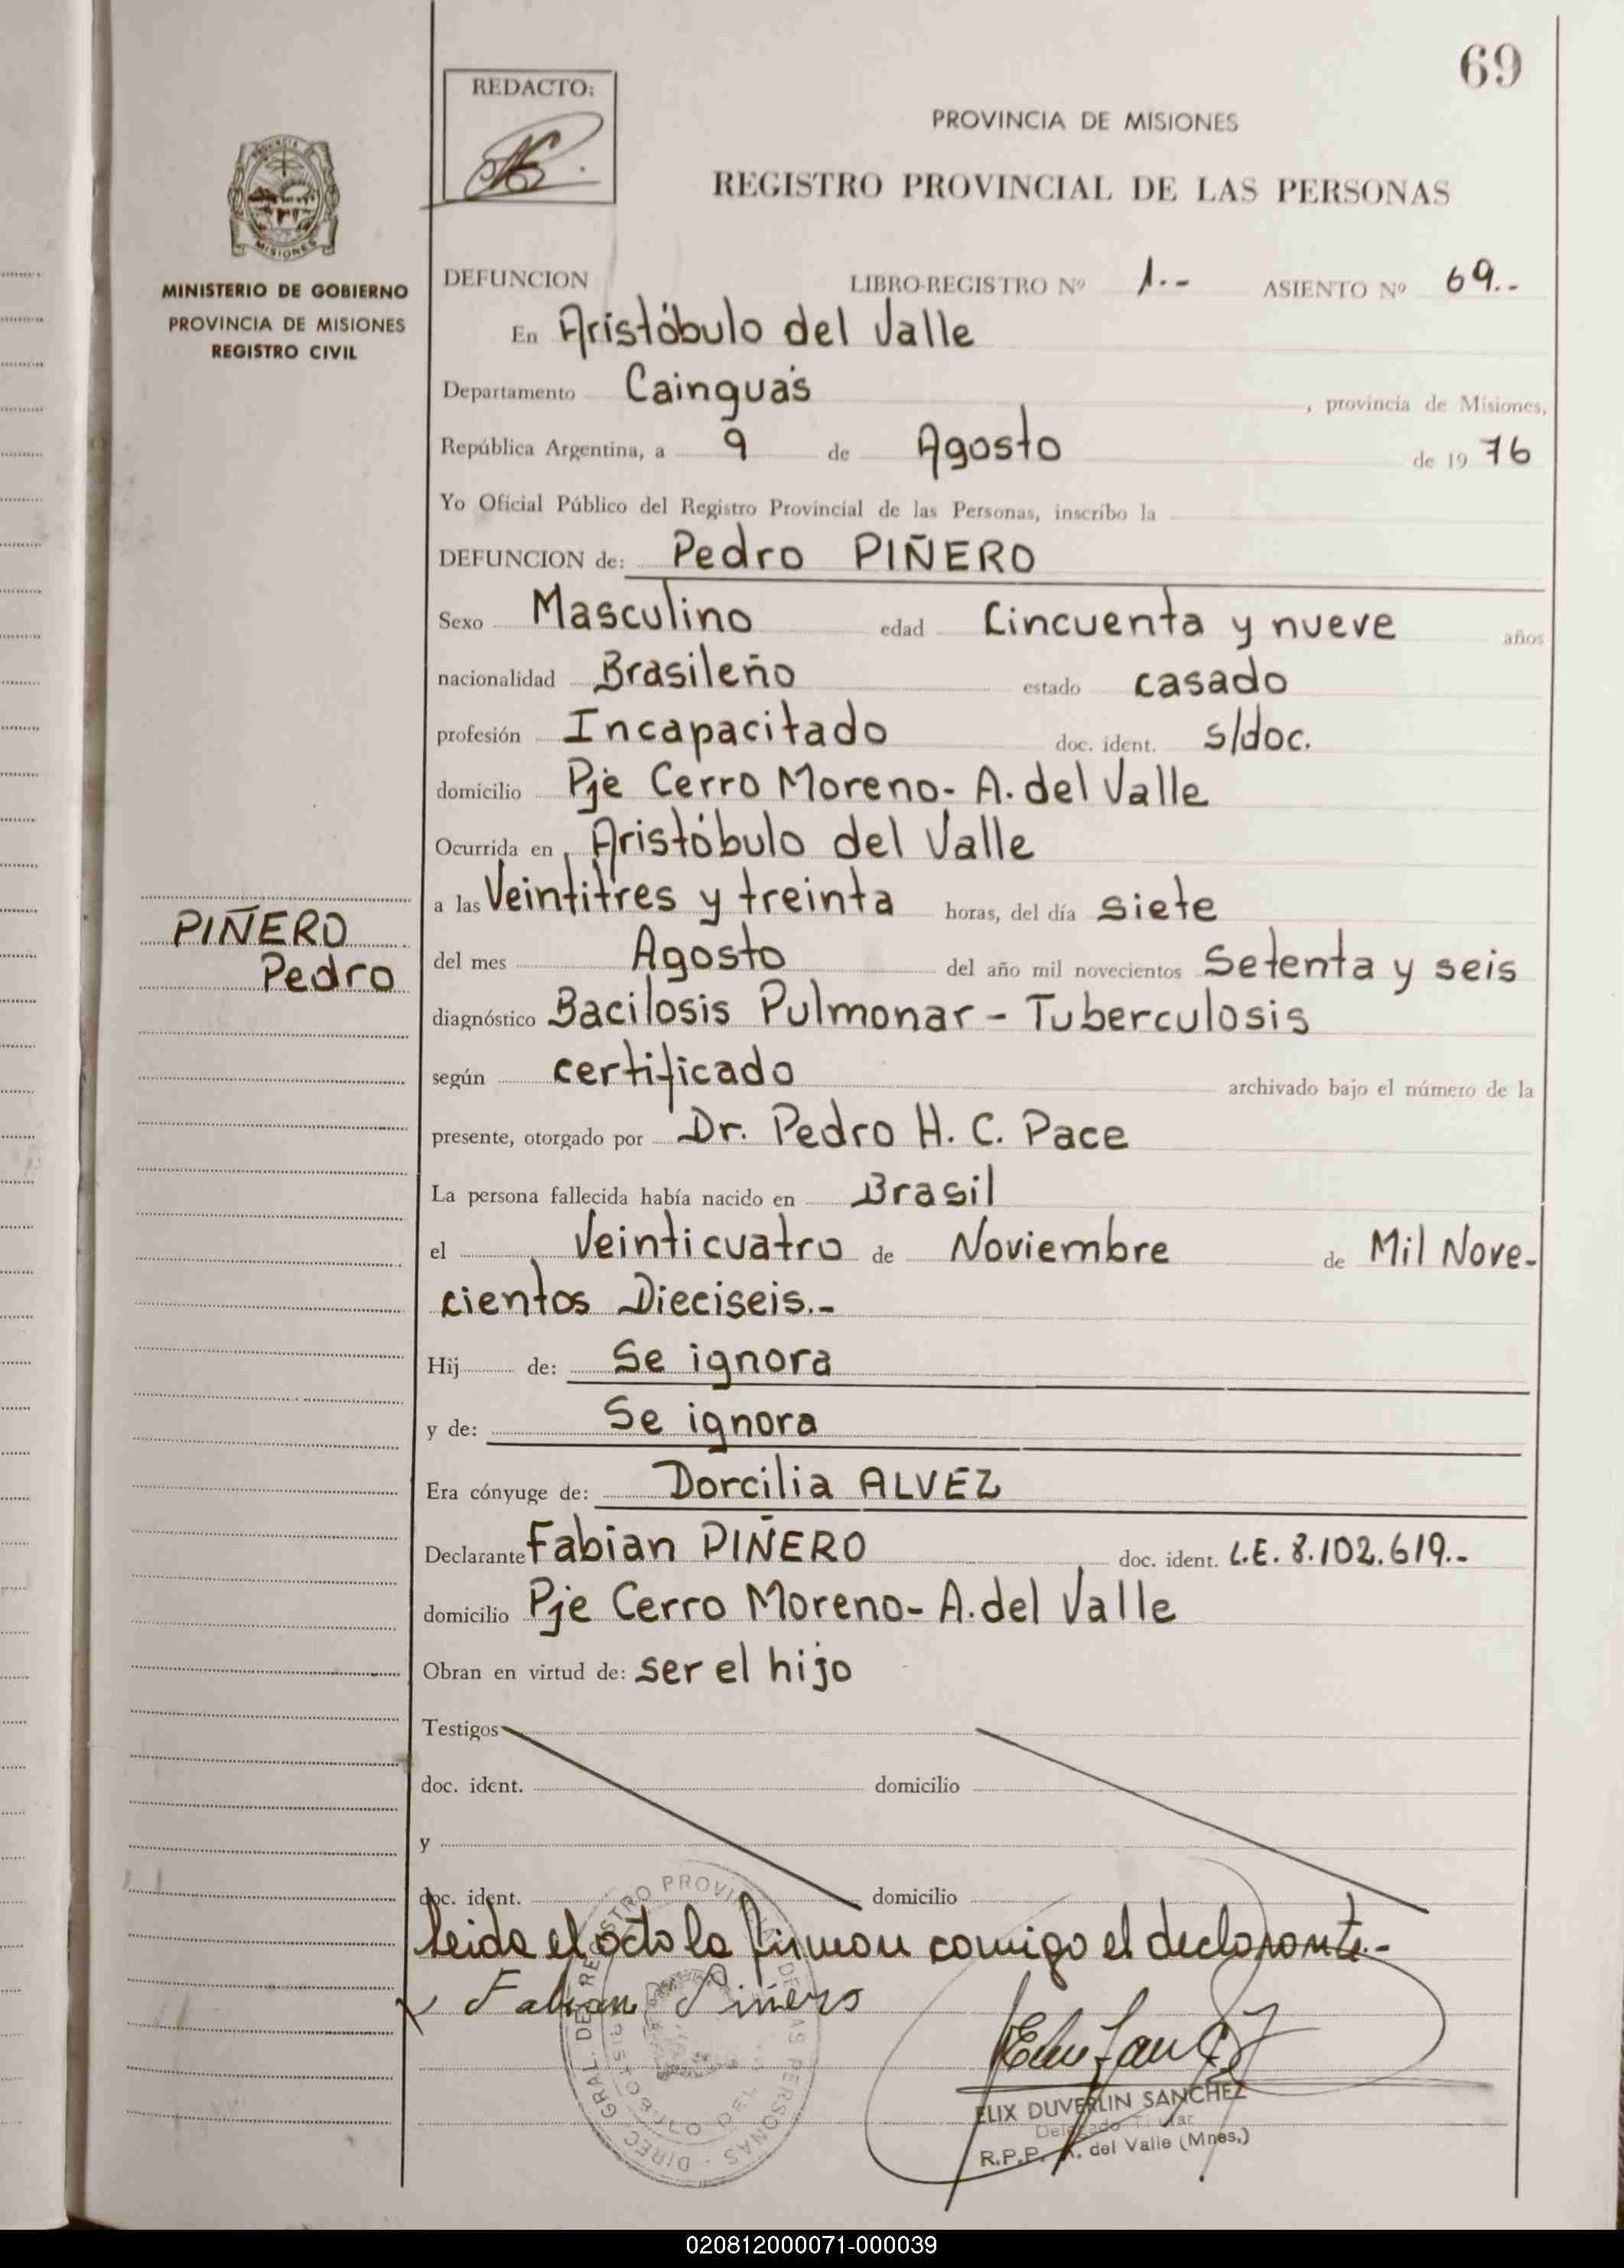 69
REDACTO:
PROVINCIA DE MISIONES
REGISTRO PROVINCIAL DE LAS PERSONAS
MISIONES
MINISTERIO DE GOBIERNO
PROVINCIA DE MISIONES
REGISTRO CIVIL
DEFUNCION LIBRO-REGISTRO Nº 1.- ASIENTO Nº 69.-
En Aristóbulo del Valle
Departamento Cainguás , provincia de Misiones,
República Argentina, a 9 de Agosto de 19 76
Yo Oficial Público del Registro Provincial de las Personas, inscribo la
DEFUNCION de: Pedro PIÑERO
Sexo Masculino edad Cincuenta y nueve años
nacionalidad Brasileño estado casado
profesión Incapacitado doc. ident. s/doc.
domicilio Pje Cerro Moreno- A. del Valle
Ocurrida en Aristóbulo del Valle
a las Veintitres y treinta horas, del día siete
PIÑERO
Pedro
del mes Agosto del año mil novecientos Setenta y seis
diagnóstico Bacilosis Pulmonar - Tuberculosis
según certificado archivado bajo el número de la
presente, otorgado por Dr. Pedro H. C. Pace
La persona fallecida había nacido en Brasil
el Veinticuatro de Noviembre de Mil Nove-
cientos Dieciseis.-
Hij de: Se ignora
y de: Se ignora
Era cónyuge de: Dorcilia ALVEZ
Declarante Fabian PIÑERO doc. ident. L.E. 8.102.619.-
domicilio Pje Cerro Moreno- A. del Valle
Obran en virtud de: ser el hijo
Testigos
doc. ident. domicilio
y
doc. ident. domicilio
leida el acto la firman comigo el declarante.-
Fabian Piñero
DIREC. GRAL. DE REGISTRO PROVINCIAL DE LAS PERSONAS
ELIX DUVERLIN SANCHEZ
Delegado Titular
R.P.P. A. del Valle (Mnes.)
020812000071-000039